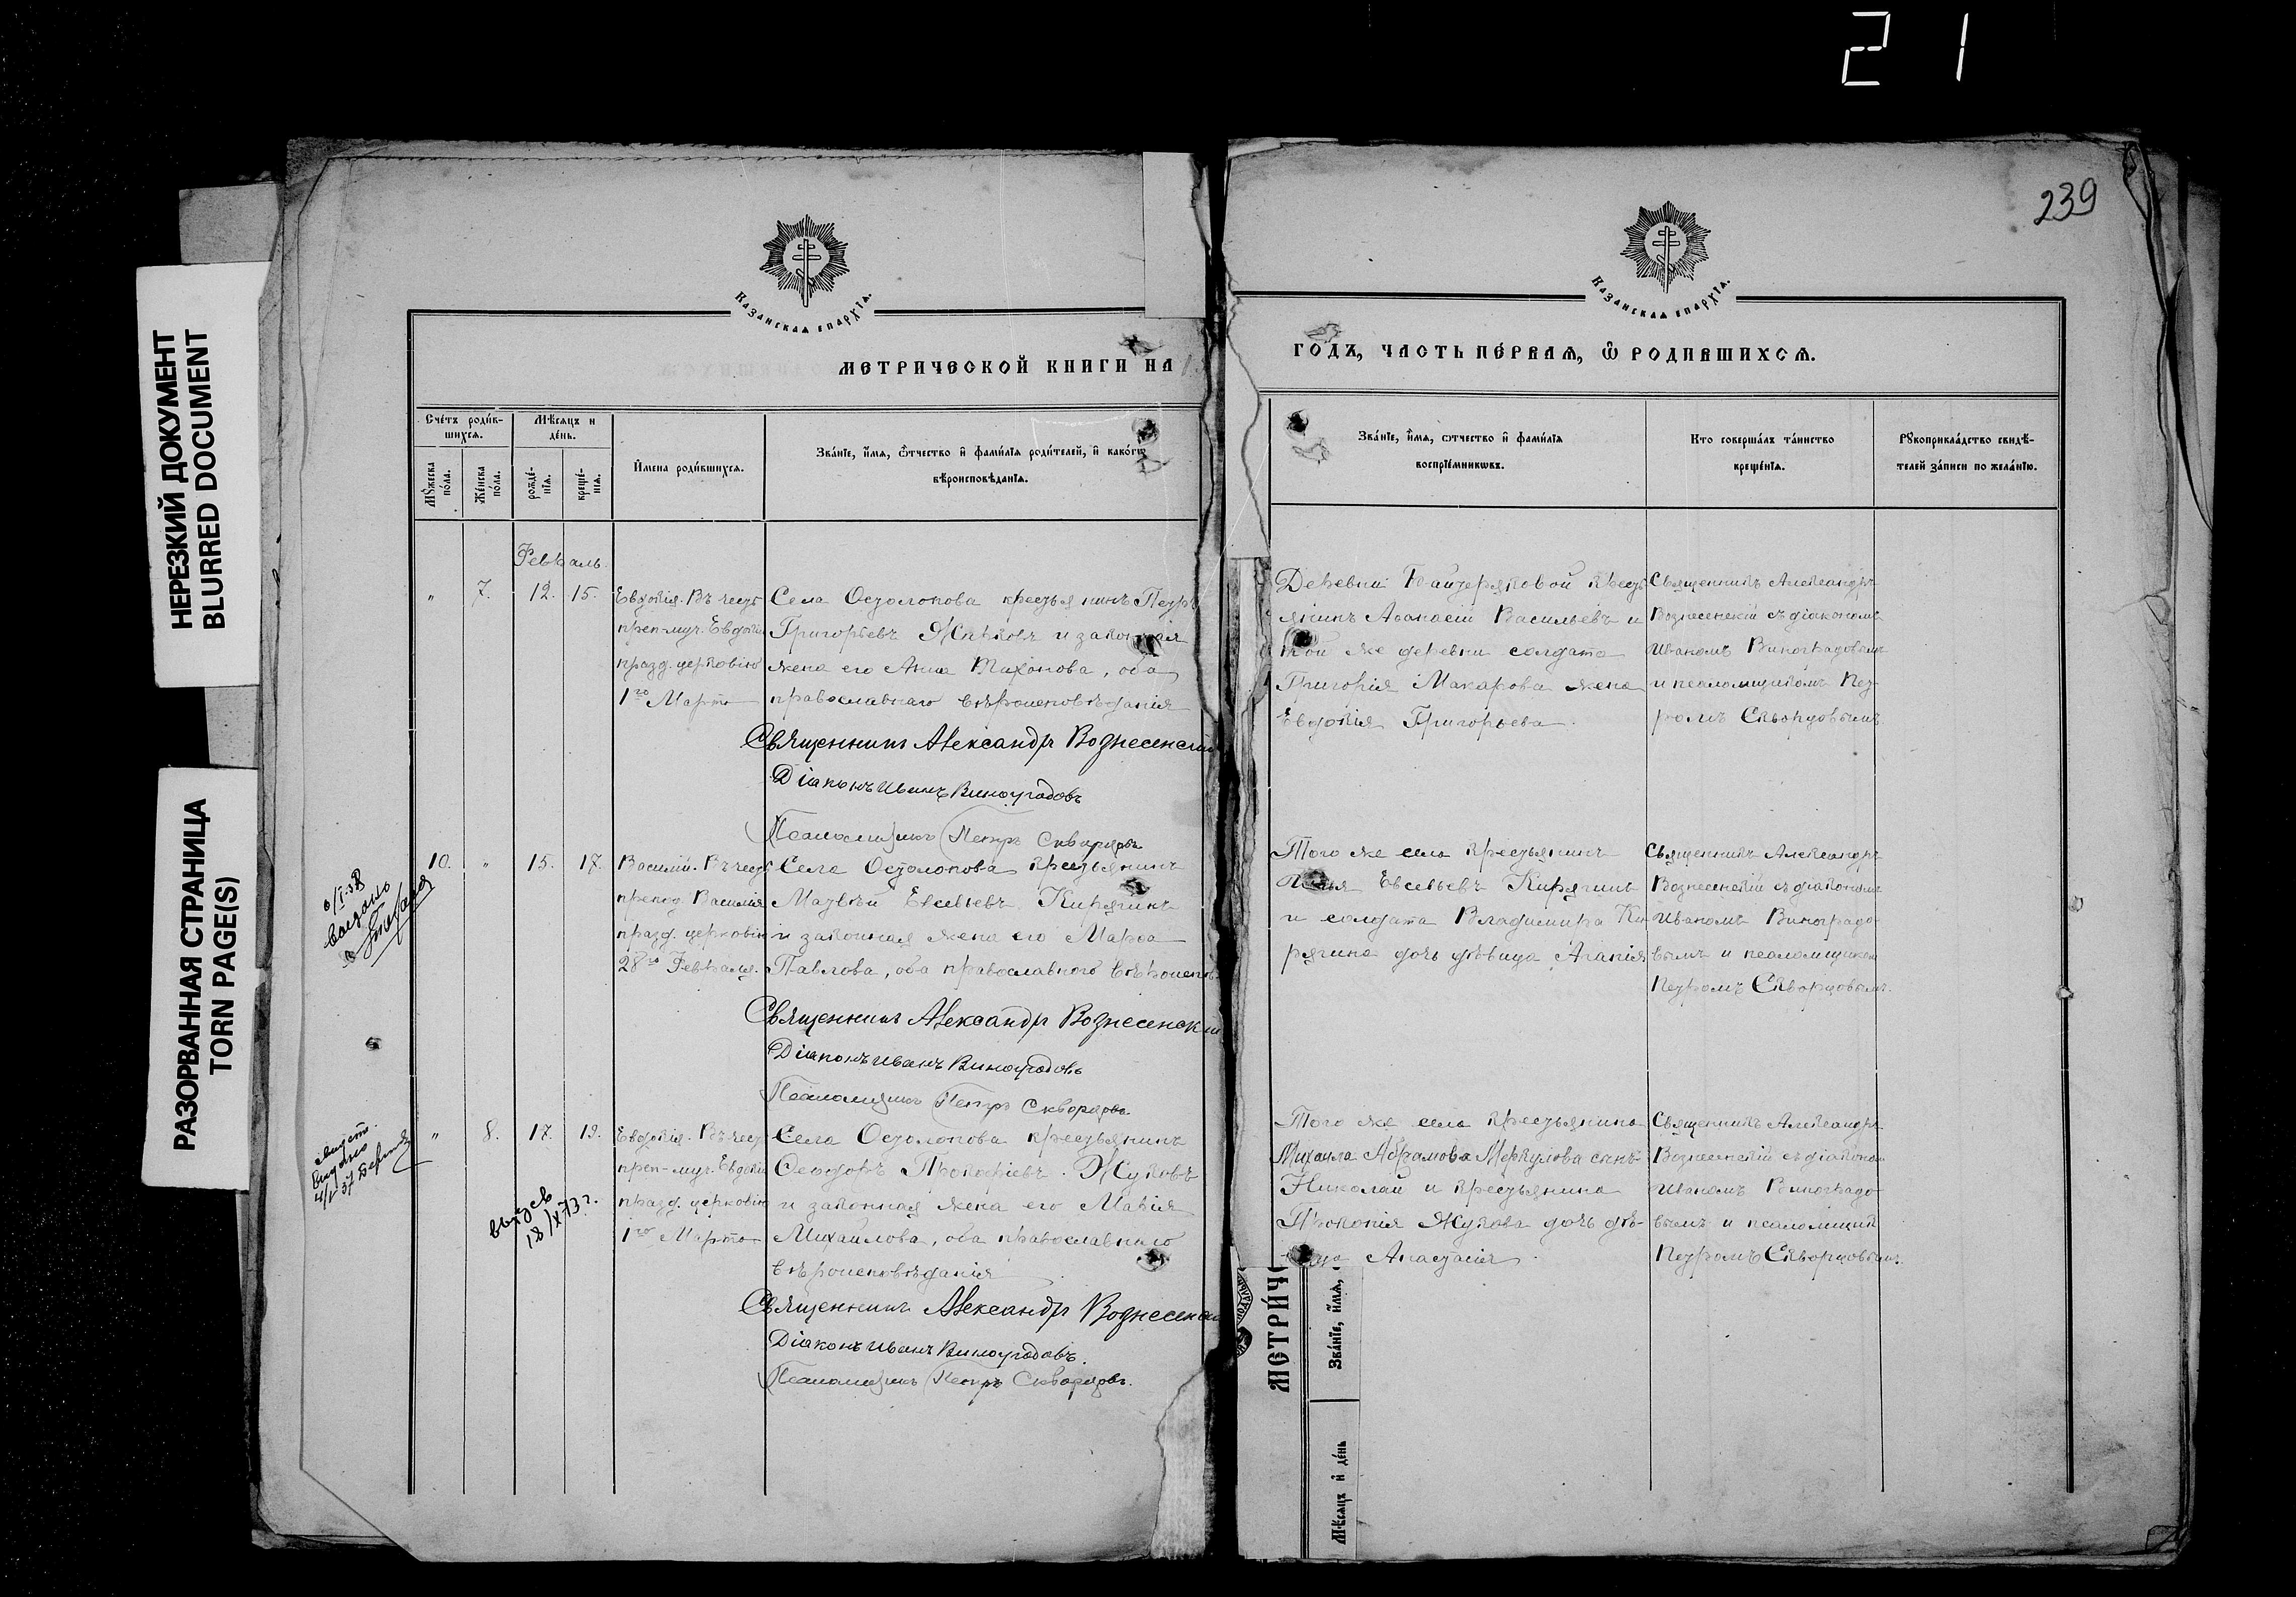 21
НЕРЕЗКИЙ ДОКУМЕНТ
BLURRED DOCUMENT
РАЗОРВАННАЯ СТРАНИЦА
TORN PAGE(S)
239
КАЗАНСКАѦ ЕПАРХІѦ.
МЕТРИЧЕСКОЙ КНИГИ НА 1
Счетъ роди́в-
шихсѧ.
Мѣсѧцъ и
де́нь.
Мꙋ́жеска
по́ла.
Же́нска
по́ла.
рожде́-
нїѧ.
креще́-
нїѧ.
И҆мена роди́вшихсѧ.
Зва́нїе, и҆́мѧ, ѻ҆́тчество и҆ фами́лїѧ роди́телей, и҆ како́гѡ
вѣроисповѣ́данїѧ.
Февраль.
" 7. 12. 15.
Евдокія. Въ честь
преп-муч. Евдокіи
празд. церковію
1го Марта
Села Остолопова крестьянинъ Петръ
Григорьевъ и законная
жена его Анна Тихонова, оба
православнаго вѣроисповѣданія
Священникъ Александръ Вознесенскій
Діаконъ Иванъ Виноградовъ
Псаломщикъ Петръ Скворцовъ
10. " 15. 17.
Василій. Въ честь
препод. Василія
празд. церковію
28го Февраля.
Села Остолопова крестьянинъ
Матвѣй Евсевьевъ Кирягинъ
и законная жена его Марѳа
Павлова, оба православного вѣроиспов.
Священникъ Александръ Вознесенскій
Діаконъ Иванъ Виноградовъ
Псаломщикъ Петръ Скворцовъ
" 8. 17. 19.
Евдокія. Въ честь
преп-муч. Евдокіи
празд. церковію
1го Марта
Села Остолопова крестьянинъ
Ѳеодоръ Прокофіевъ Жуковъ
и законная жена его Марія
Михайлова, оба православнаго
вѣроисповѣданія
Священникъ Александръ Вознесенскій
Діаконъ Иванъ Виноградовъ.
Псаломщикъ Петръ Скворцовъ.
18/X 73 г.
КАЗАНСКАѦ ЕПАРХІѦ.
ГОДЪ, ЧАСТЬ ПЕ́РВАѦ, Ѿ РОДИВШИХСѦ.
Зва́нїе, и҆́мѧ, ѻтчество и҆ фами́лїѧ
воспрїе́мникѡвъ.
Кто соверша́лъ та́инство
креще́нїѧ.
Рꙋкоприкла́дство свидѣ́-
телей за́писи по жела́нїю.
Деревни крест
янинъ Аѳанасій Васильевъ и
той же деревни солдата
Григорія Макарова жена
Евдокія Григорьева.
Священникъ Александръ
Вознесенскій съ діакономъ
Иваномъ Виноградовымъ
и псаломщикомъ Пет-
ромъ Скворцовымъ.
Того же села крестьянинъ
Евсевьевъ Кирягинъ
и солдата Владимира Ки-
рягина дочь дѣвица Агапія
Священникъ Александръ
Вознесенскій съ діакономъ
Иваномъ Виноградо-
вымъ и псаломщикомъ
Петромъ Скворцовымъ.
Того же села крестьянина
Михаила Абрамова Меркулова сынъ
Николай и крестьянина
Прокопія Жукова дочь дѣ-
вица Анастасія.
Священникъ Александръ
Вознесенскій съ діакономъ
Иваномъ Виноградо-
вымъ и псаломщик
Петромъ Скворцовымъ.
МЕТРИ́Ч
Зва́нїе, и҆́мѧ,
Мѣ́сѧцъ и҆ де́нь